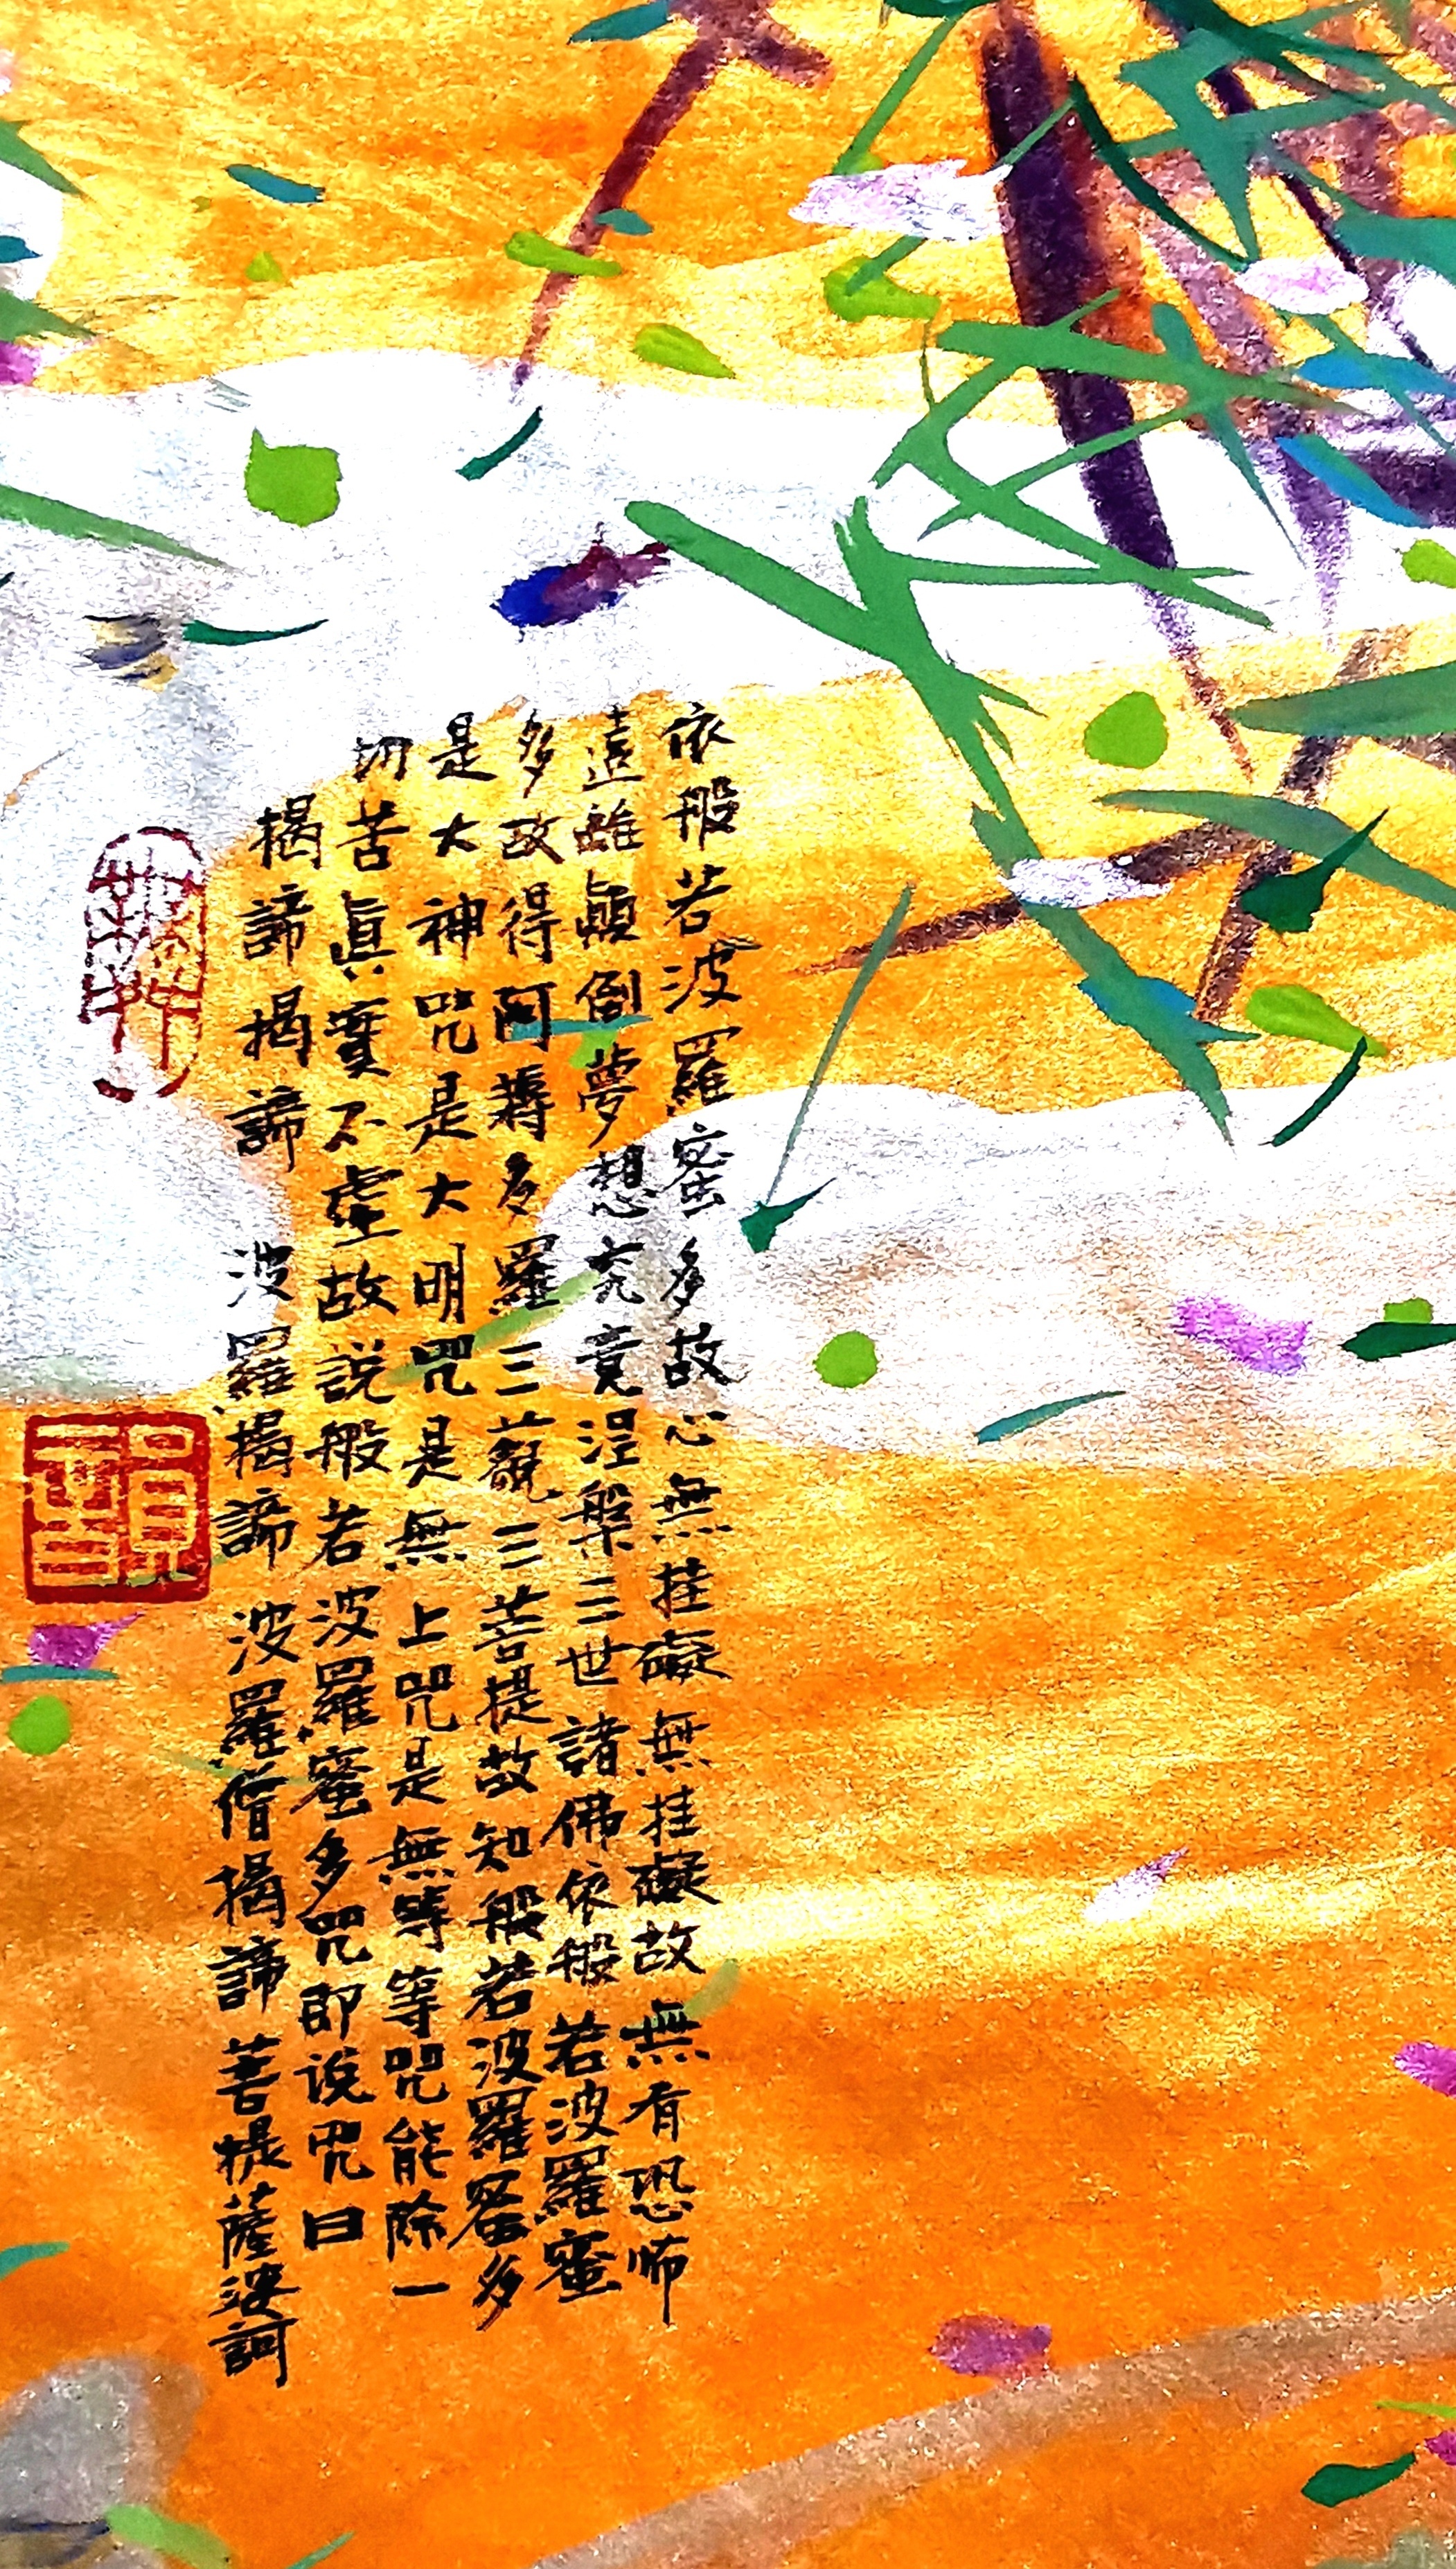 依般若波羅蜜多故心無挂礙無挂礙故無有恐怖
遠離顛倒夢想究竟涅槃三世諸佛依般若波羅蜜
多故得阿耨多羅三藐三菩提故知般若波羅蜜多
是大神咒是大明咒是無上咒是無等等咒能除一
切苦眞實不虛故說般若波羅蜜多咒即說咒曰
揭諦揭諦 波羅揭諦 波羅僧揭諦菩提薩婆訶